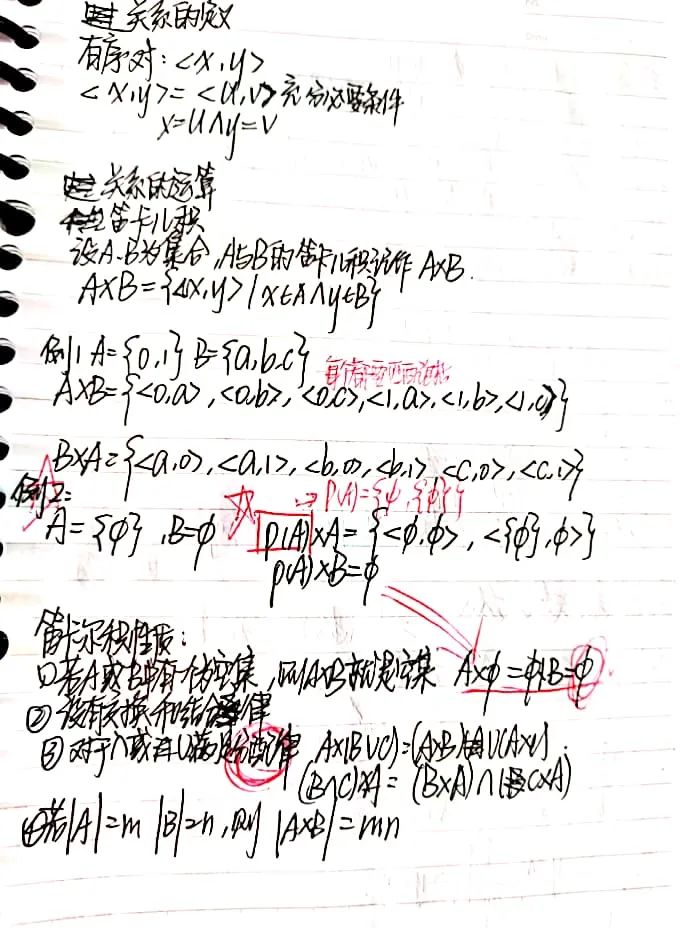 关系的定义
有序对：<x,y>
<x,y>=<u,v>充分必要条件
x=u∧y=v
关系的运算
笛卡儿积
设A、B为集合，A与B的笛卡儿积记作 A×B.
A×B={<x,y>|x∈A∧y∈B}
例1 A={0,1} B={a,b,c}
A×B={<0,a>,<0,b>,<0,c>,<1,a>,<1,b>,<1,c>}
B×A={<a,0>,<a,1>,<b,0>,<b,1>,<c,0>,<c,1>}
例2:
→P(A)={φ,{φ}}
A={φ},B=φ P(A)×A={<φ,φ>,<{φ},φ>}
P(A)×B=φ
笛卡尔积性质：
①若A或B中有一个空集，则A×B就是空集 A×φ=φ×B=φ
②没有交换和结合律
③对于∩或者∪满足分配律 A×(B∪C)=(A×B)∪(A×C).
(B∩C)×A=(B×A)∩(C×A)
④若|A|=m |B|=n,则|A×B|=mn